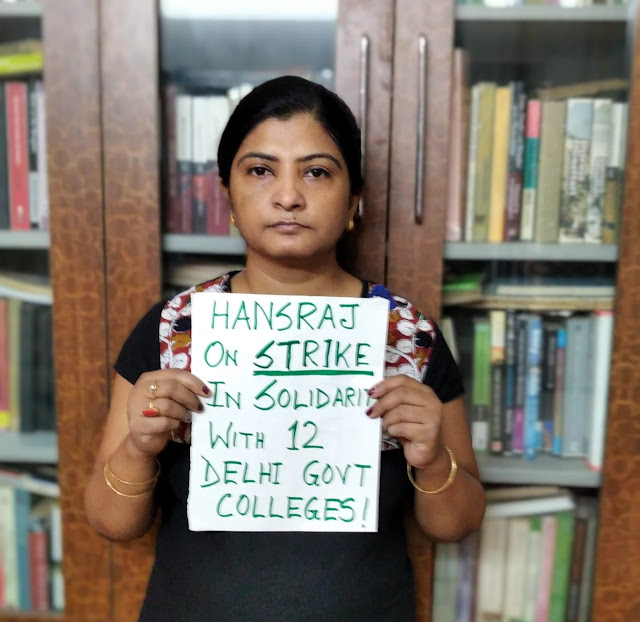 HANSRAJ
ON STRIKE
IN SOLIDARIT
WITH 12
DELHI GOVT
COLLEGES!